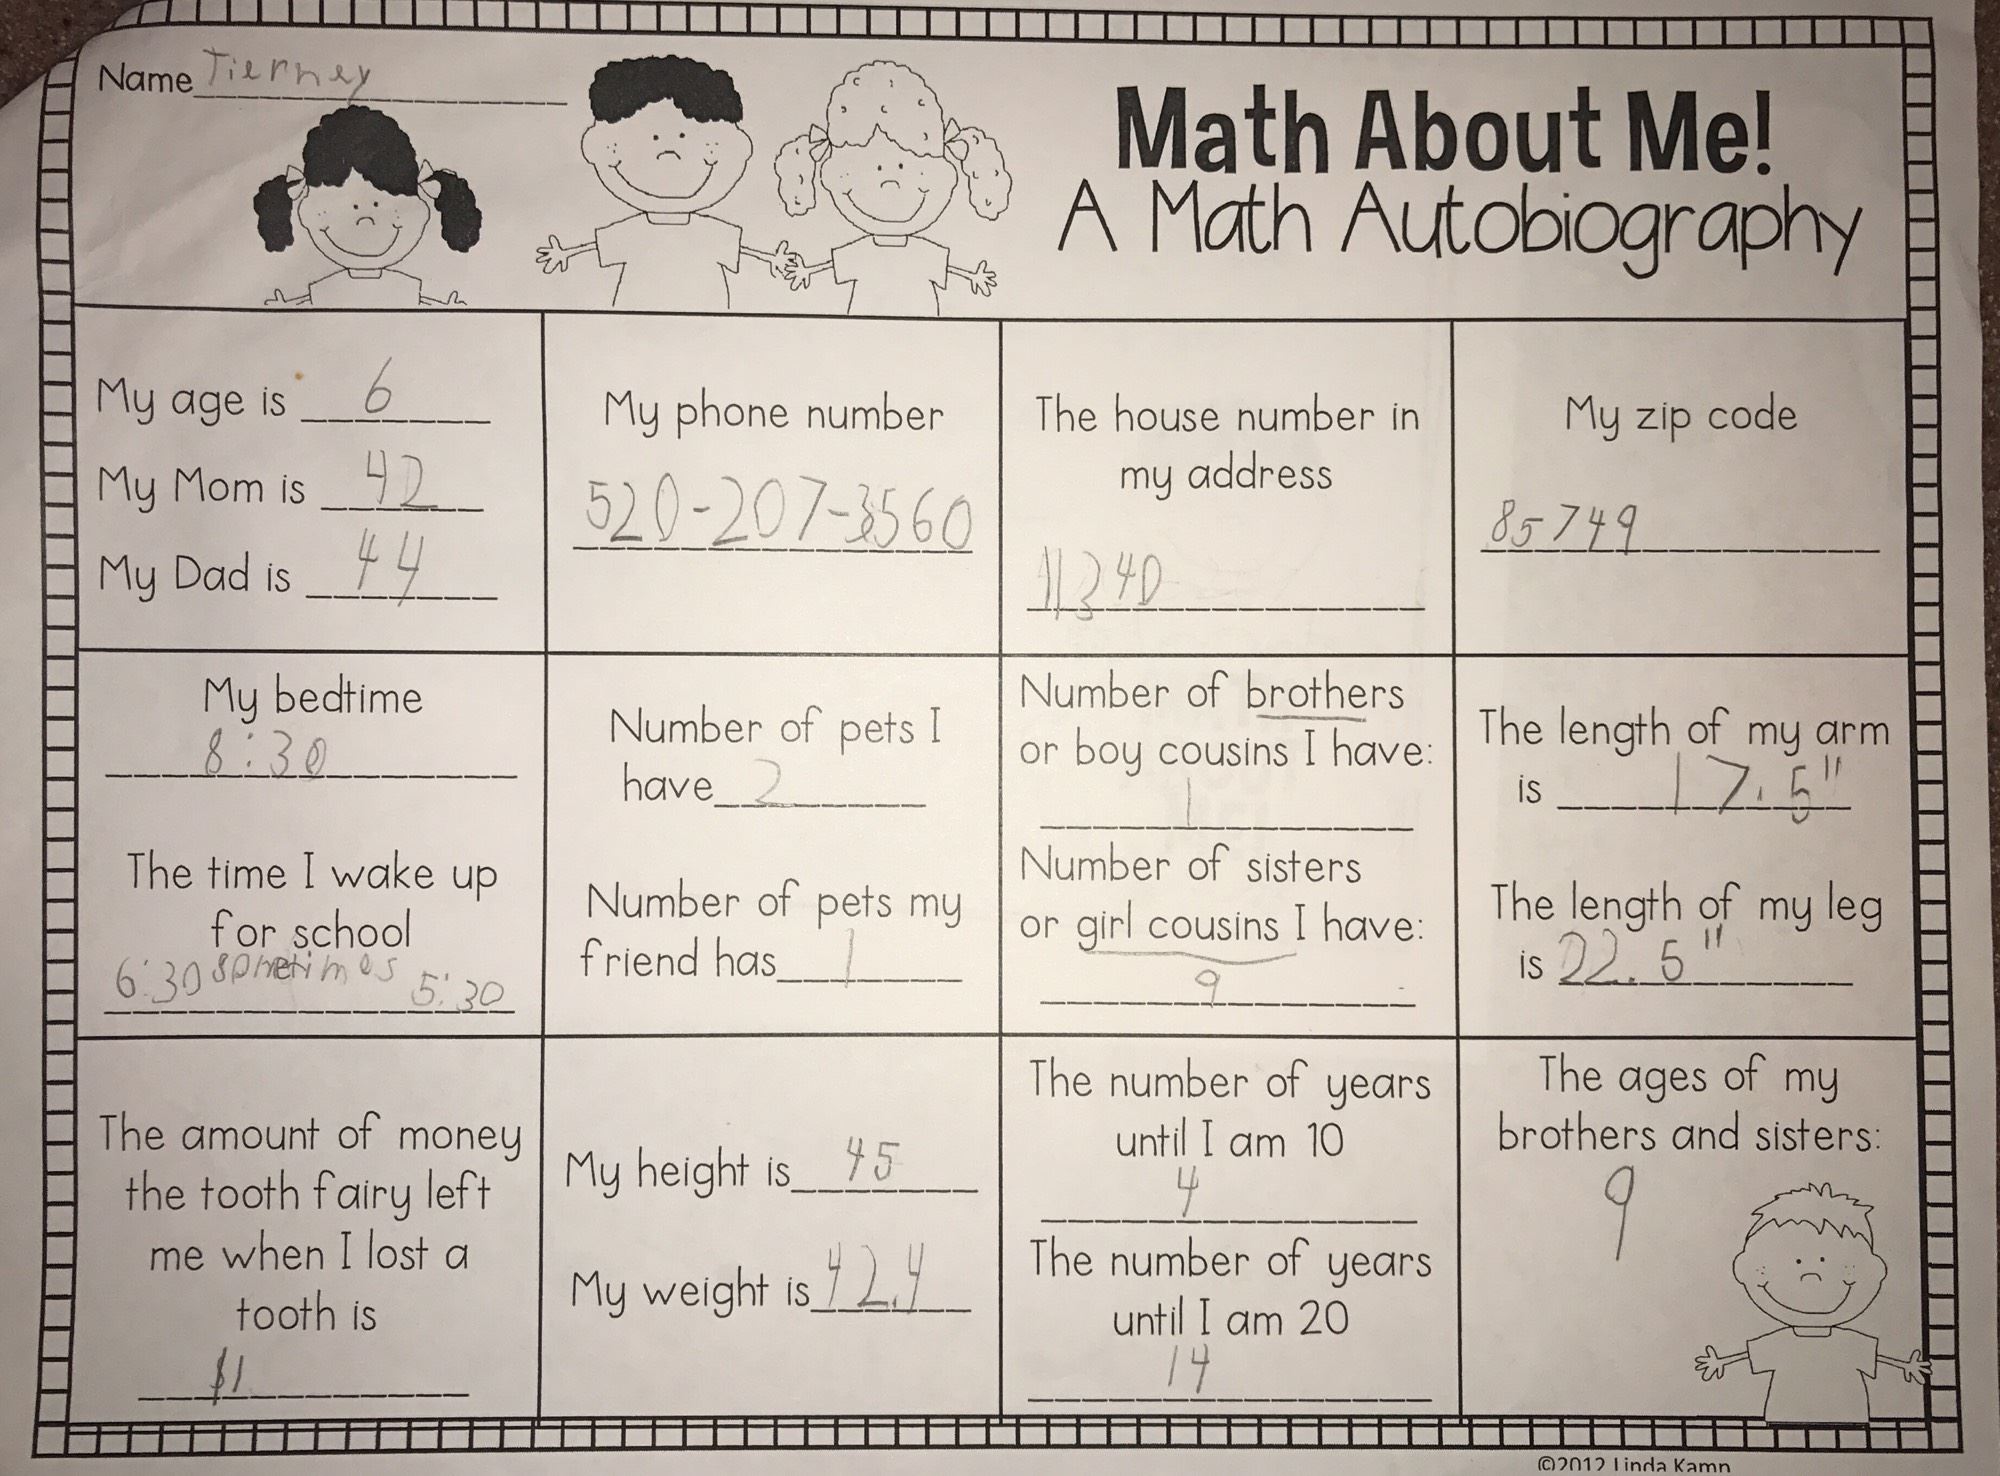 Name Tierney
Math About Me!
A Math Autobiography
My age is 6
My Mom is 42
My Dad is 44
My phone number
520-207-3560
The house number in
my address
11340
My zip code
85749
My bedtime
8:30
The time I wake up
for school
6:30 sometimes 5:30
Number of pets I
have 2
Number of pets my
friend has 1
Number of brothers
or boy cousins I have:
1
Number of sisters
or girl cousins I have:
9
The length of my arm
is 17.5"
The length of my leg
is 22.5"
The amount of money
the tooth fairy left
me when I lost a
tooth is
$1
My height is 45
My weight is 42.4
The number of years
until I am 10
4
The number of years
until I am 20
14
The ages of my
brothers and sisters:
9
©2012 Linda Kamp